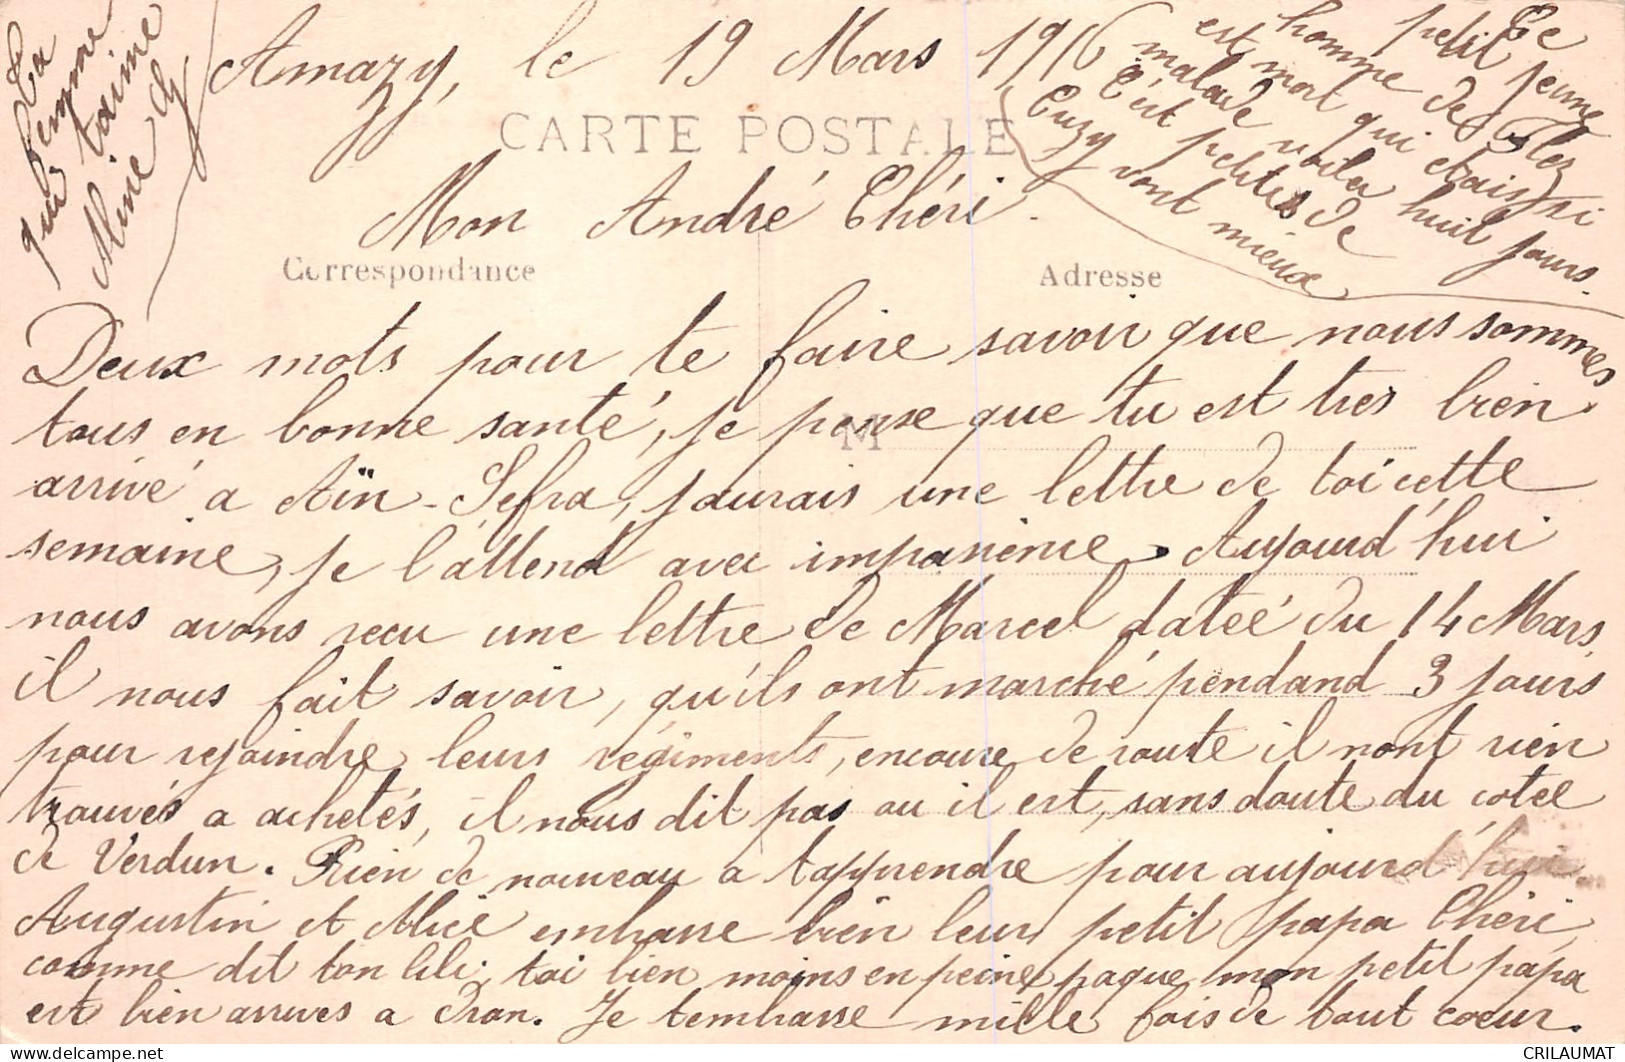 Amazy, le 19 Mars 1916
CARTE POSTALE
Mon André Chéri.
Correspondance
Adresse
M
Deux mots pour te faire savoir que nous sommes
tous en bonne santé, je pense que tu est tres bien
arrivé a Aïn-Sefra, jaurais une lettre de toi cette
semaine, je l'attend avec impasience. Aujourd'hui
nous avons recu une lettre de Marcel dateé du 14 Mars,
il nous fait savoir, qu'ils ont marché pendand 3 jours
pour rejoindre leurs régiments, encoure de route il nont rien
trouvés a achetés, il nous dit pas ou il est, sans doute du cotee
de Verdun. Rien de nouveau a tapprendre pour aujourd'hui.
Augustin et Alice embrasse bien leur petit papa Chéri,
comme dit ton lili, toi bien moins en peine paque mon petit papa
est bien arrives a Oran. Je tembrasse mille fois de tout coeur.
Ta
femme
qui taime
Aline
Ce
petit jeune
homme de
est mort qui etais si
malade voila huit jours.
C'est petites de
Cuzy vont mieux
CRILAUMAT
delcampe.net